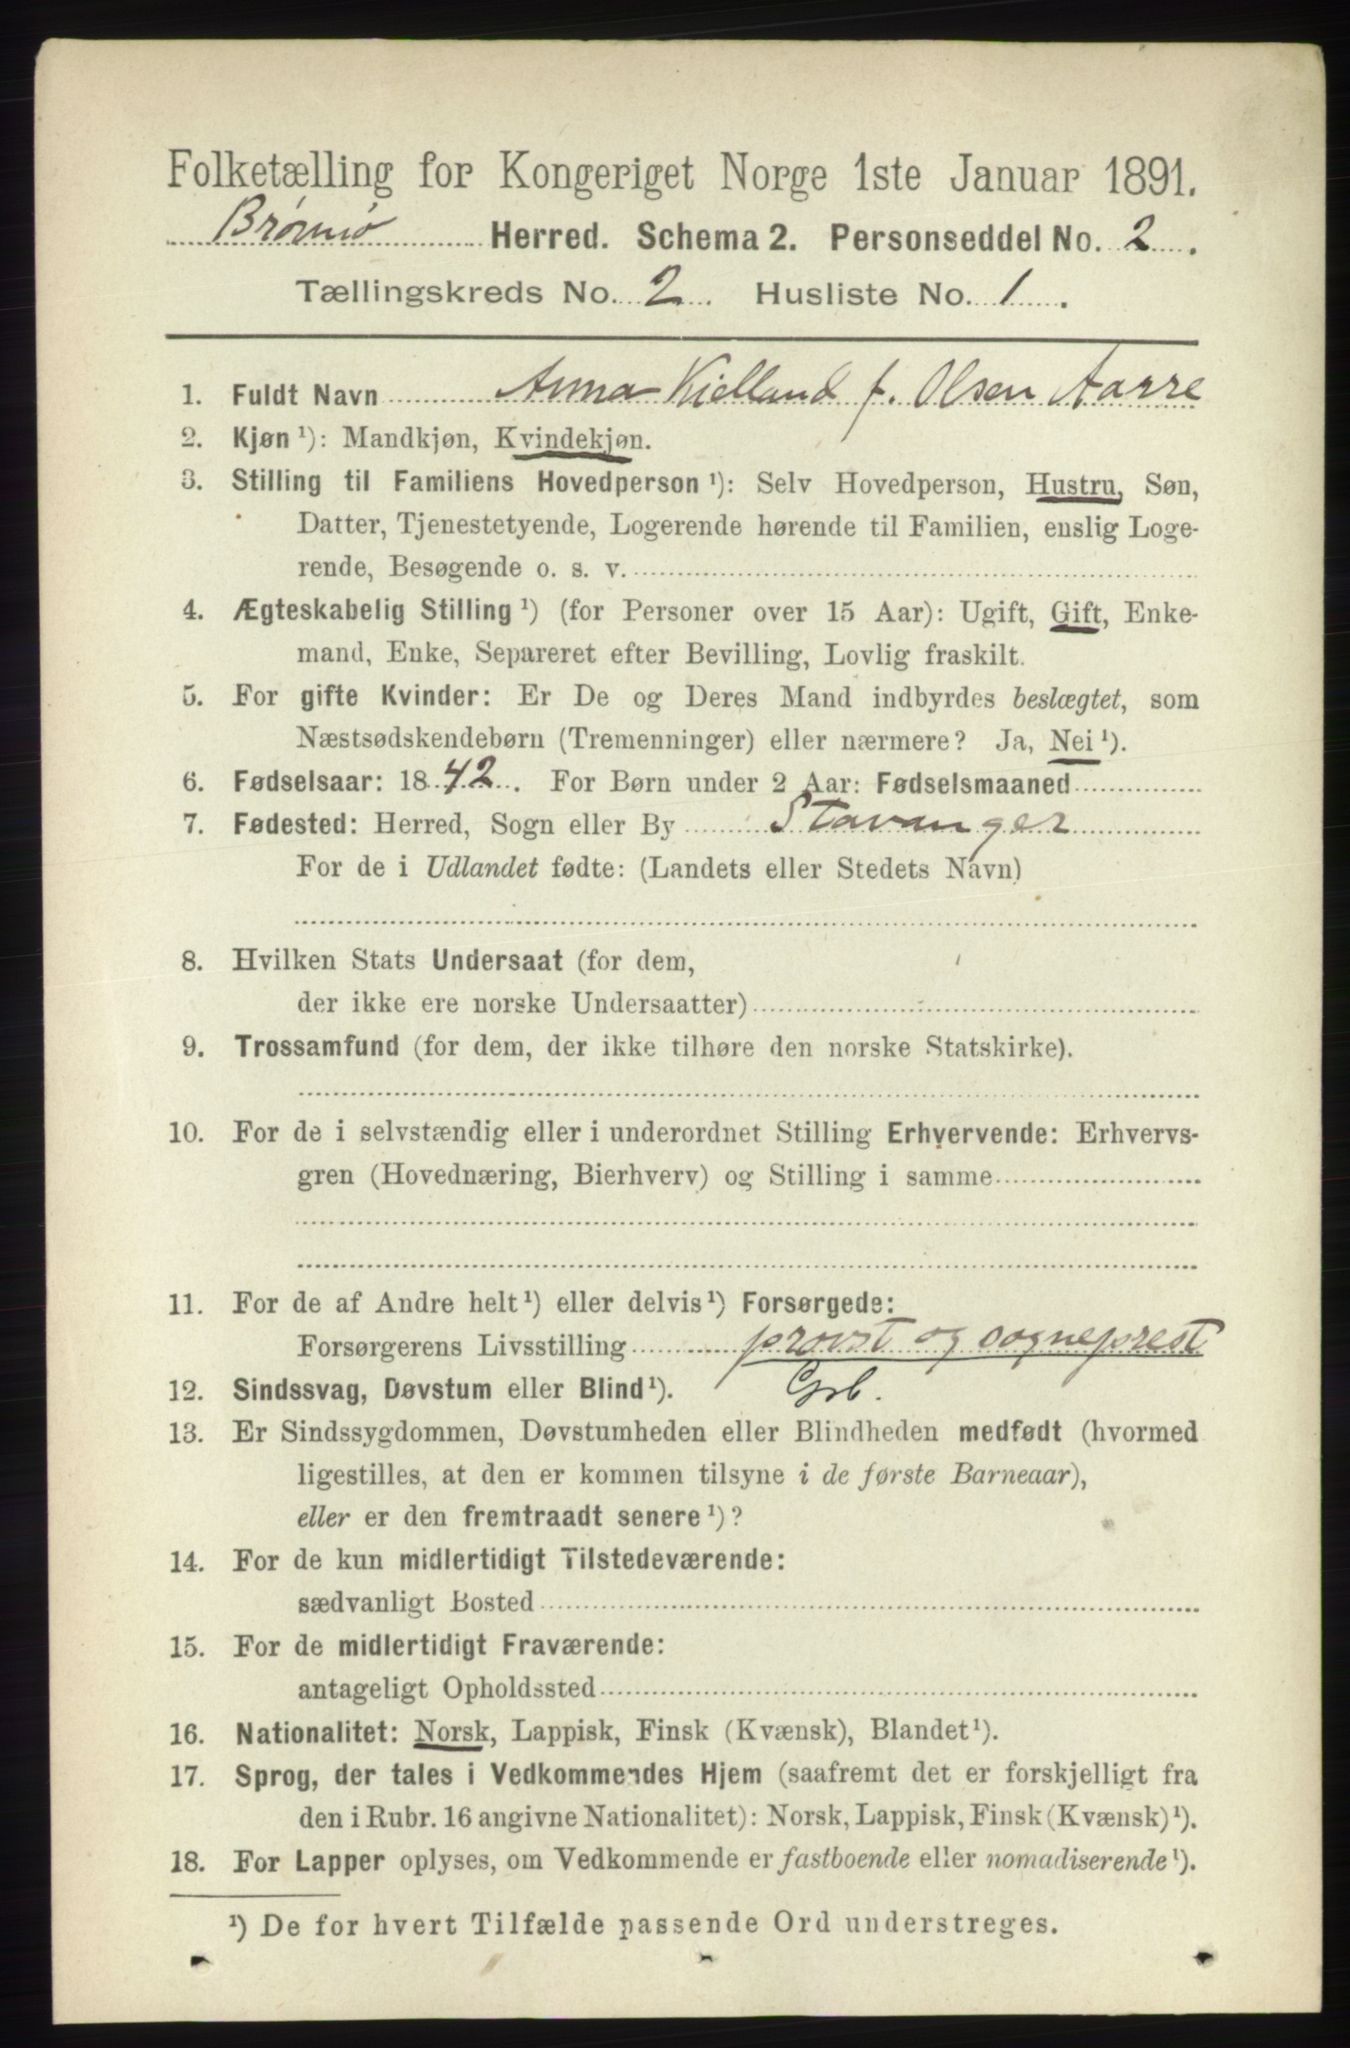 Folketælling for Kongeriget Norge 1ste Januar 1891.
Brønnø Herred. Schema 2. Personseddel No. 2.
Tællingskreds No. 2. Husliste No. 1.
1. Fuldt Navn Anna Kielland f. Olsen Aarre
2. Kjøn ¹): Mandkjøn, Kvindekjøn.
3. Stilling til Familiens Hovedperson ¹): Selv Hovedperson, Hustru, Søn,
Datter, Tjenestetyende, Logerende hørende til Familien, enslig Loge-
rende, Besøgende o. s. v.
4. Ægteskabelig Stilling ¹) (for Personer over 15 Aar): Ugift, Gift, Enke-
mand, Enke, Separeret efter Bevilling, Lovlig fraskilt.
5. For gifte Kvinder: Er De og Deres Mand indbyrdes beslægtet, som
Næstsødskendebørn (Tremenninger) eller nærmere? Ja, Nei ¹).
6. Fødselsaar: 1842. For Børn under 2 Aar: Fødselsmaaned
7. Fødested: Herred, Sogn eller By Stavanger
For de i Udlandet fødte: (Landets eller Stedets Navn)
8. Hvilken Stats Undersaat (for dem,
der ikke ere norske Undersaatter)
9. Trossamfund (for dem, der ikke tilhøre den norske Statskirke).
10. For de i selvstændig eller i underordnet Stilling Erhvervende: Erhvervs-
gren (Hovednæring, Bierhverv) og Stilling i samme
11. For de af Andre helt ¹) eller delvis ¹) Forsørgede:
Forsørgerens Livsstilling provst og sogneprest
12. Sindssvag, Døvstum eller Blind ¹). Grb.
13. Er Sindssygdommen, Døvstumheden eller Blindheden medfødt (hvormed
ligestilles, at den er kommen tilsyne i de første Barneaar),
eller er den fremtraadt senere ¹)?
14. For de kun midlertidigt Tilstedeværende:
sædvanligt Bosted
15. For de midlertidigt Fraværende:
antageligt Opholdssted
16. Nationalitet: Norsk, Lappisk, Finsk (Kvænsk), Blandet ¹).
17. Sprog, der tales i Vedkommendes Hjem (saafremt det er forskjelligt fra
den i Rubr. 16 angivne Nationalitet): Norsk, Lappisk, Finsk (Kvænsk) ¹).
18. For Lapper oplyses, om Vedkommende er fastboende eller nomadiserende ¹).
¹) De for hvert Tilfælde passende Ord understreges.